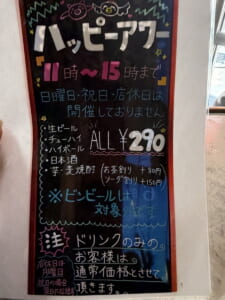 ハッピーアワー
11時～15時まで
日曜日・祝日・店休日は
開催しておりません
・生ビール
・チューハイ
・ハイボール
・日本酒
・芋・麦焼酎
ALL ¥290
(お茶割り +80円
ソーダ割り +150円)
※ビンビールは
対象外です
注 ドリンクのみの
お客様は
通常価格とさせて
頂きます。
店休日は
月曜日
祝日の場合